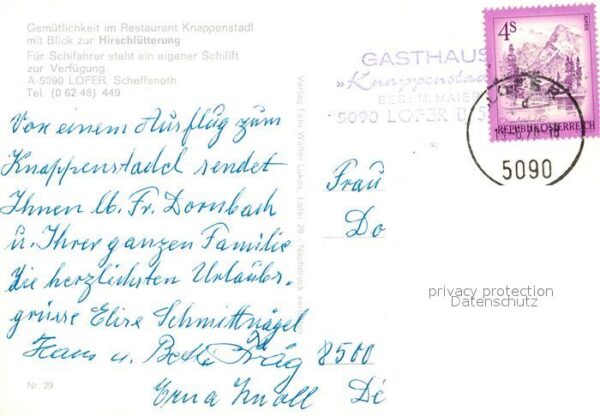 Gemütlichkeit im Restaurant Knappenstadl
mit Blick zur Hirschfütterung
Für Schifahrer steht ein eigener Schilift
zur Verfügung
A-5090 LOFER, Scheffsnoth
Tel. (0 62 48) 449
Von einem Ausflug zum
Knappenstadel sendet
Ihnen lb. Fr. Dornbach
u. Ihrer ganzen Familie
die herzlichsten Urlaubs-
grüsse Elise Schmittnägel
Hans u. Präg
Erna Knoll
Nr. 29
Verlag Foto Walter Lukas, Lofer 29 - Nachdruck
GASTHAUS
"Knappenstad
BES: M. MAIER
5090 LOFER
4S
REPUBLIK ÖSTERREICH
LOFER
5090
Frau
Do
8500
privacy protection
Datenschutz